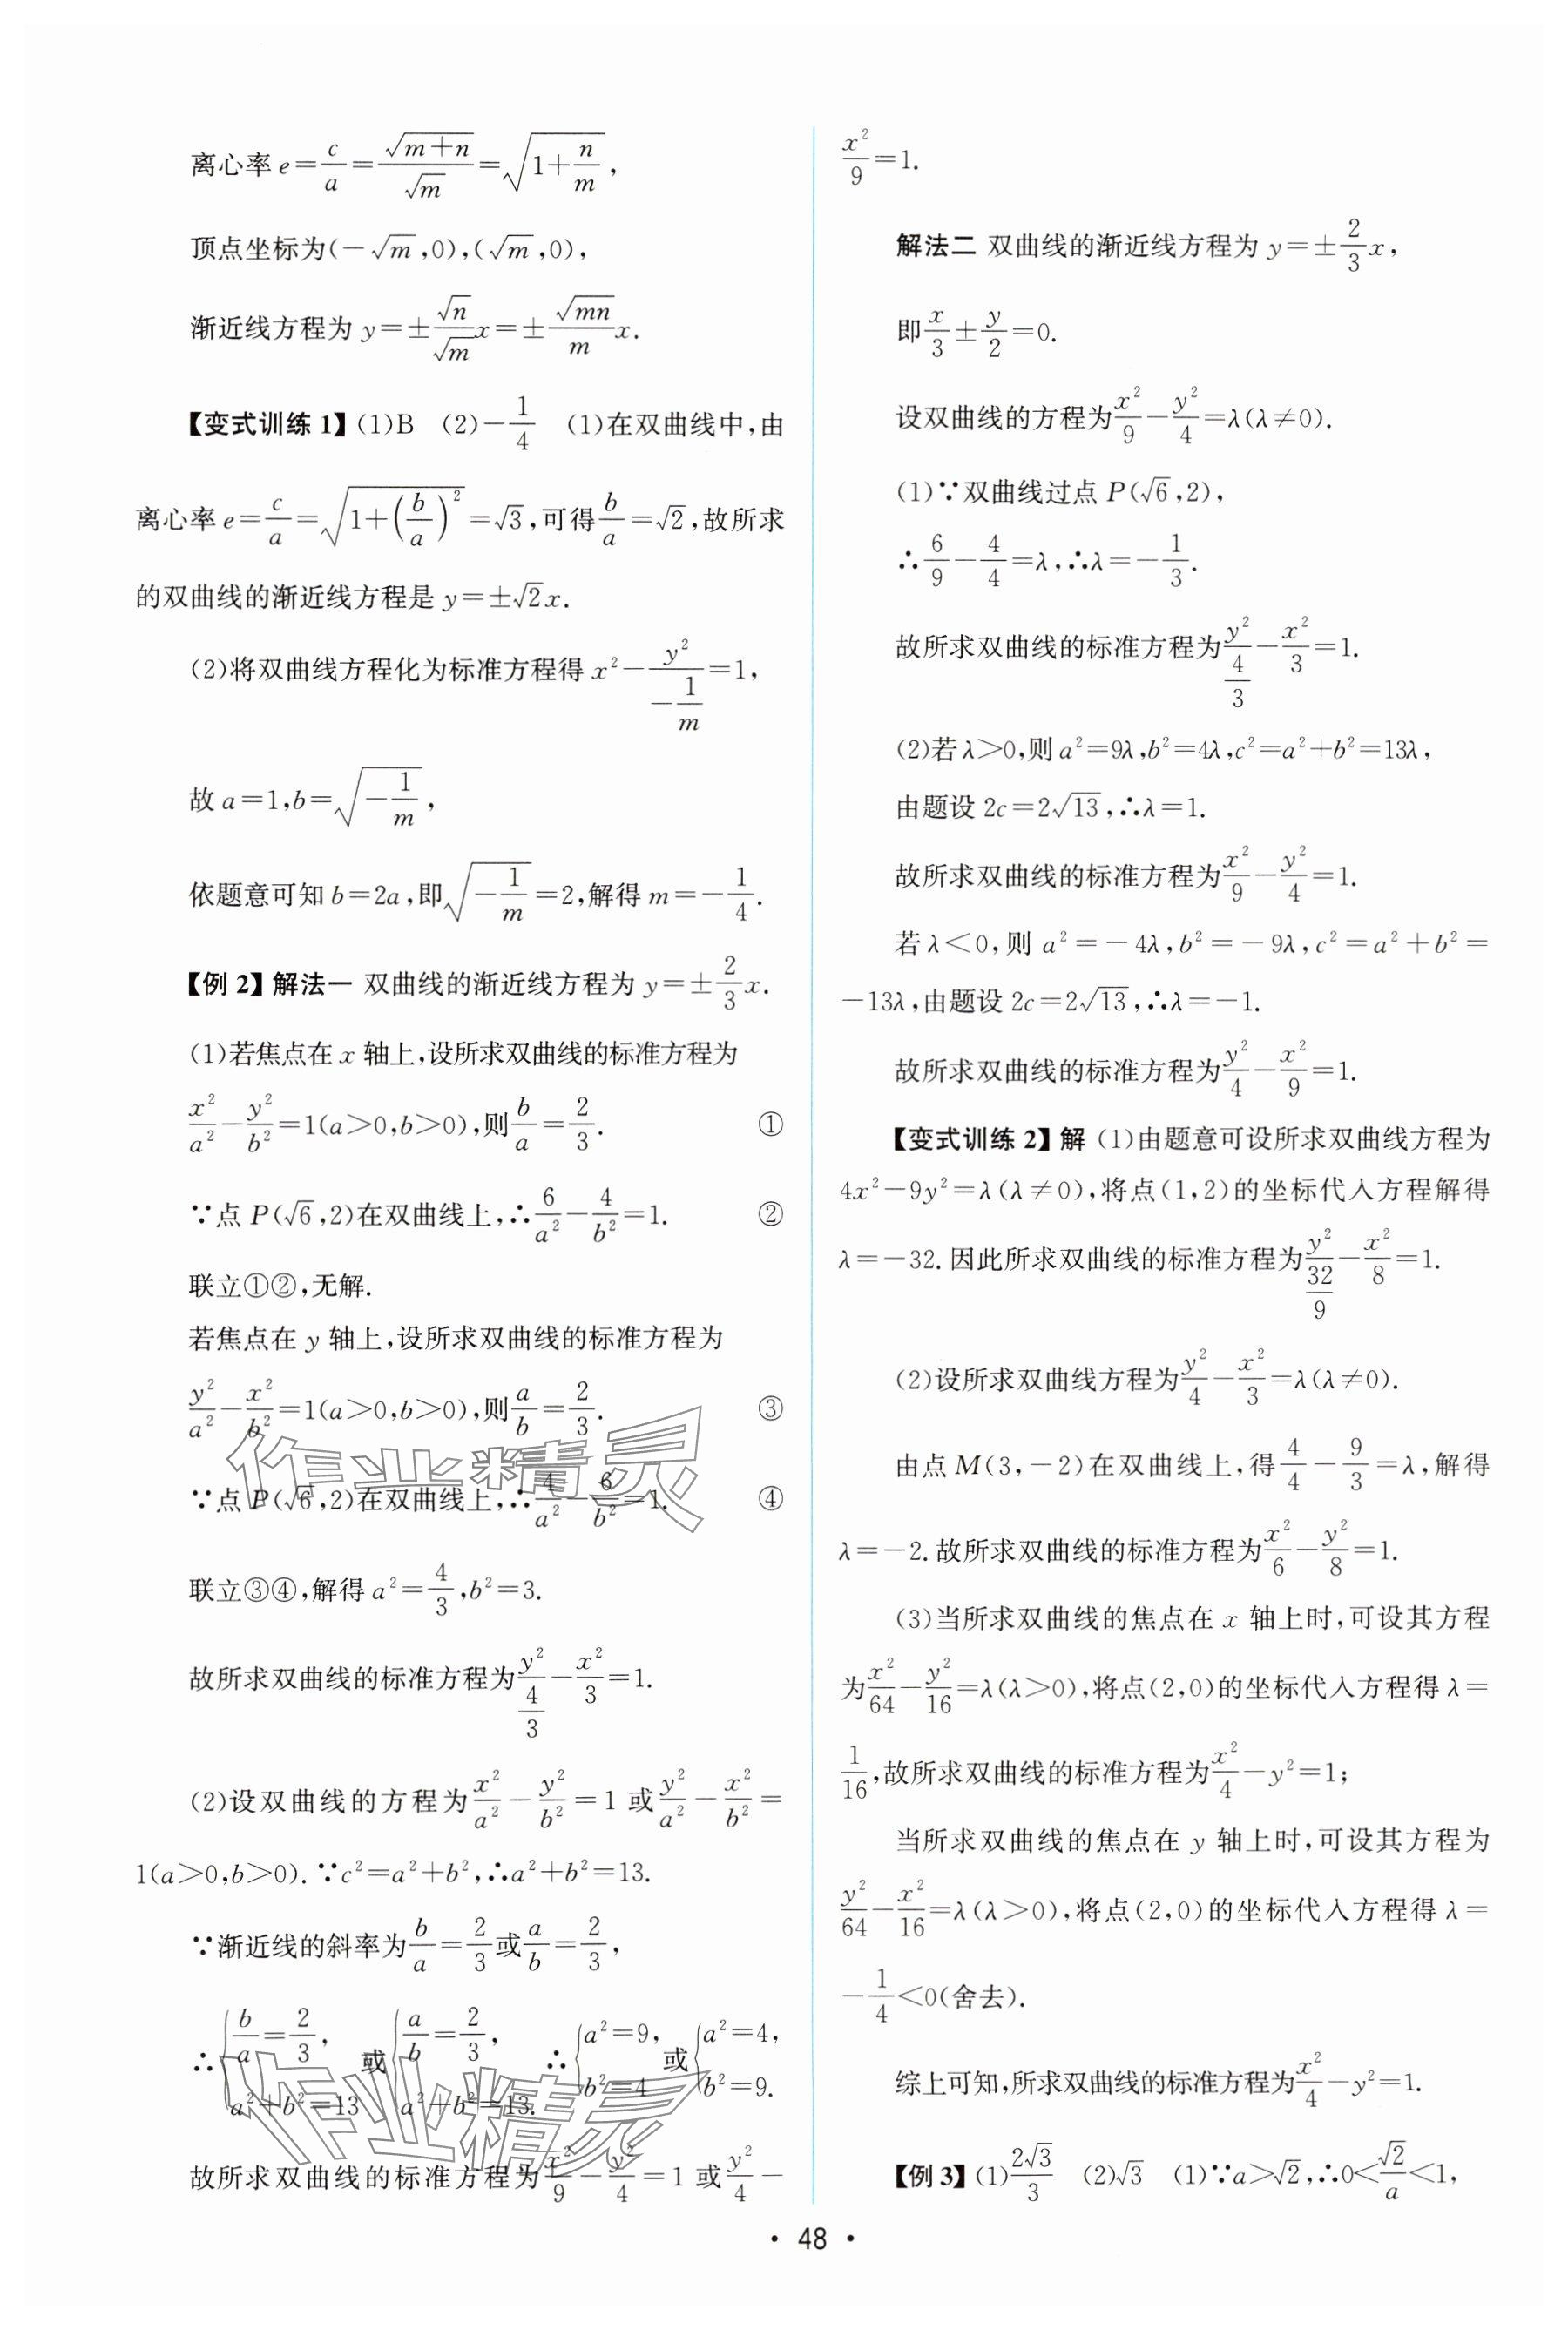 离心率 e=c/a=√(m+n)/√m=√(1+n/m),
顶点坐标为(-√m,0),(√m,0),
渐近线方程为 y=±(√n/√m)x=±(√(mn)/m)x.
【变式训练1】(1)B (2)-1/4 (1)在双曲线中,由
离心率 e=c/a=√(1+(b/a)²)=√3,可得b/a=√2,故所求
的双曲线的渐近线方程是 y=±√2x.
(2)将双曲线方程化为标准方程得 x²-y²/(-1/m)=1,
故 a=1,b=√(-1/m),
依题意可知 b=2a,即√(-1/m)=2,解得 m=-1/4.
【例2】解法一 双曲线的渐近线方程为 y=±(2/3)x.
(1)若焦点在 x 轴上,设所求双曲线的标准方程为
x²/a²-y²/b²=1(a>0,b>0),则b/a=2/3. ①
∵点 P(√6,2)在双曲线上,∴6/a²-4/b²=1. ②
联立①②,无解.
若焦点在 y 轴上,设所求双曲线的标准方程为
y²/a²-x²/b²=1(a>0,b>0),则a/b=2/3. ③
∵点 P(√6,2)在双曲线上,∴4/a²-6/b²=1. ④
联立③④,解得 a²=4/3,b²=3.
故所求双曲线的标准方程为y²/(4/3)-x²/3=1.
(2)设双曲线的方程为x²/a²-y²/b²=1 或y²/a²-x²/b²=
1(a>0,b>0).∵c²=a²+b²,∴a²+b²=13.
∵渐近线的斜率为b/a=2/3或a/b=2/3,
∴{b/a=2/3, a²+b²=13 或{a/b=2/3, a²+b²=13. ∴{a²=9, b²=4 或{a²=4, b²=9.
故所求双曲线的标准方程为x²/9-y²/4=1 或y²/4-
x²/9=1.
解法二 双曲线的渐近线方程为 y=±(2/3)x,
即x/3±y/2=0.
设双曲线的方程为x²/9-y²/4=λ(λ≠0).
(1)∵双曲线过点 P(√6,2),
∴6/9-4/4=λ,∴λ=-1/3.
故所求双曲线的标准方程为y²/(4/3)-x²/3=1.
(2)若 λ>0,则 a²=9λ,b²=4λ,c²=a²+b²=13λ,
由题设 2c=2√13,∴λ=1.
故所求双曲线的标准方程为x²/9-y²/4=1.
若 λ<0,则 a²=-4λ,b²=-9λ,c²=a²+b²=
-13λ,由题设 2c=2√13,∴λ=-1.
故所求双曲线的标准方程为y²/4-x²/9=1.
【变式训练2】解 (1)由题意可设所求双曲线方程为
4x²-9y²=λ(λ≠0),将点(1,2)的坐标代入方程解得
λ=-32.因此所求双曲线的标准方程为y²/(32/9)-x²/8=1.
(2)设所求双曲线方程为y²/4-x²/3=λ(λ≠0).
由点 M(3,-2)在双曲线上,得4/4-9/3=λ,解得
λ=-2.故所求双曲线的标准方程为x²/6-y²/8=1.
(3)当所求双曲线的焦点在 x 轴上时,可设其方程
为x²/64-y²/16=λ(λ>0),将点(2,0)的坐标代入方程得 λ=
1/16,故所求双曲线的标准方程为x²/4-y²=1;
当所求双曲线的焦点在 y 轴上时,可设其方程为
y²/64-x²/16=λ(λ>0),将点(2,0)的坐标代入方程得 λ=
-1/4<0(舍去).
综上可知,所求双曲线的标准方程为x²/4-y²=1.
【例3】(1)2√3/3 (2)√3 (1)∵a>√2,∴0<√2/a<1,
作业精灵
作业精灵
· 48 ·